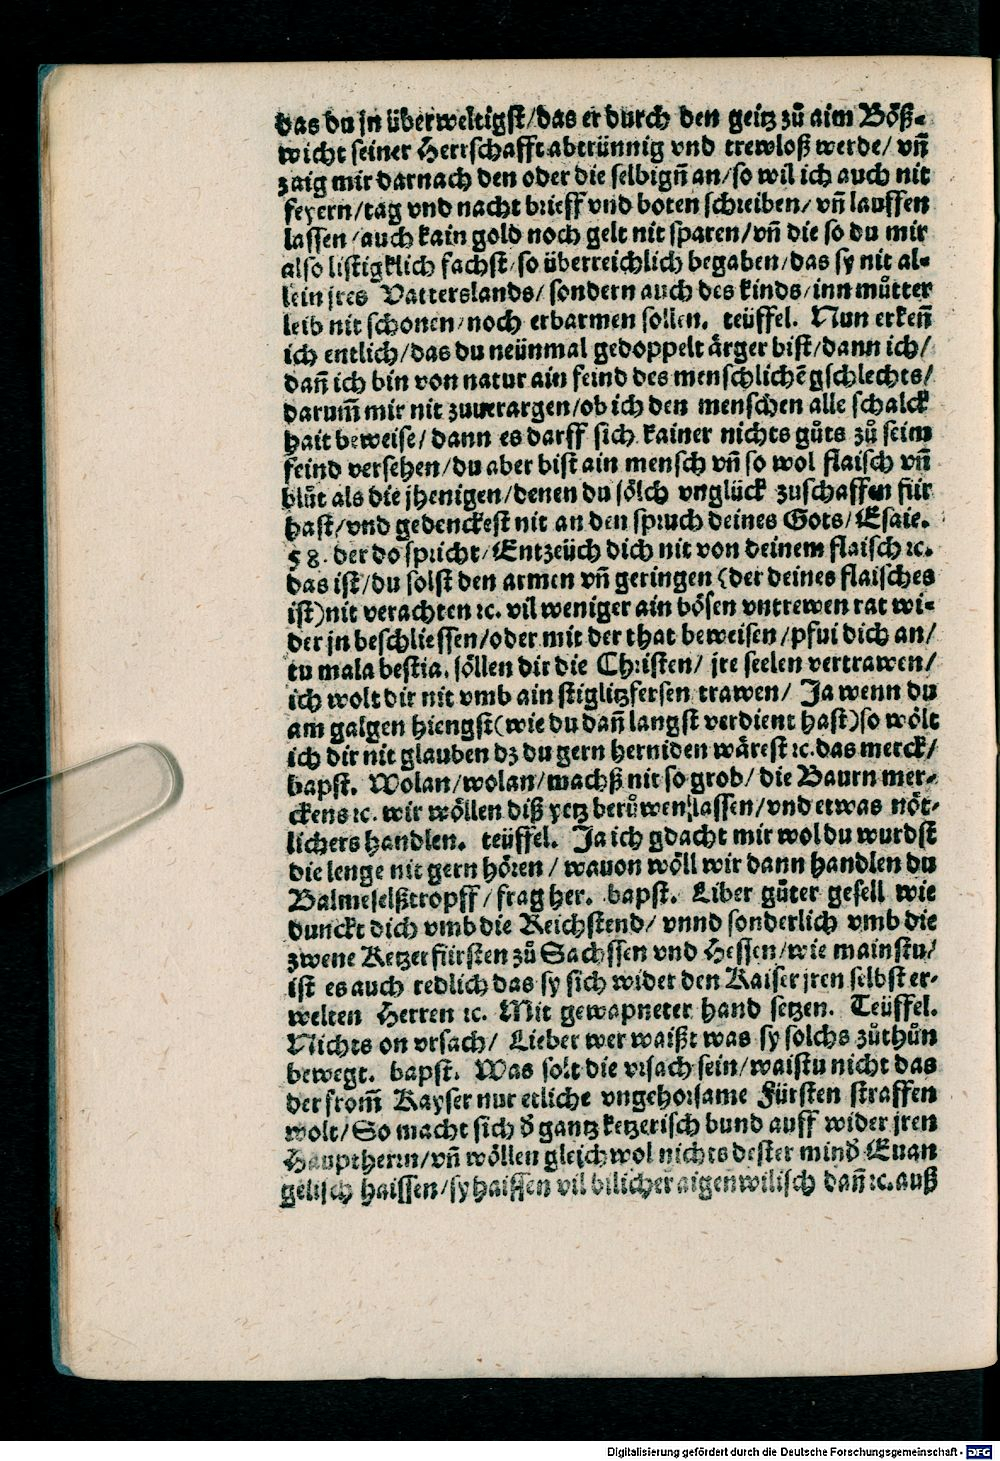 das du jn überweltigst/das er durch den geitz zů aim Böß⸗
wicht seiner Herrschafft abtrünnig vnd trewloß werde/ vñ
zaig mir darnach den oder die selbigñ an/so wil ich auch nit
feyern/tag vnd nacht brieff vnd boten schreiben/ vñ lauffen
lassen/auch kain gold noch gelt nit sparen/vñ die so du mir
also listigklich fachst/so überreichlich begaben/das sy nit al⸗
lein jres Vatterslands/ sondern auch des kinds/inn můtter
leib nit schonen/noch erbarmen sollen. teüffel. Nun erkeñ
ich entlich/das du neünmal gedoppelt ärger bist/dann ich/
dañ ich bin von natur ain feind des menschlichẽ gschlechts/
darum̃ mir nit zuuerargen/ob ich den menschen alle schalck
hait beweise/dann es darff sich kainer nichts gůts zů seim
feind versehen/du aber bist ain mensch vñ so wol flaisch vñ
blůt als die jhenigen/denen du sölch vnglück zuschaffen für
hast/vnd gedenckest nit an den spruch deines Gots/Esaie.
58. der do spricht/Entzeüch dich nit von deinem flaisch ꝛc.
das ist/du solst den armen vñ geringen (der deines flaisches
ist)nit verachten ꝛc. vil weniger ain bösen vntrewen rat wi⸗
der jn beschliessen/oder mit der that beweisen/pfui dich an/
tu mala bestia. söllen dir die Christen/ jre seelen vertrawen/
ich wolt dir nit vmb ain stiglitzfersen trawen/ Ja wenn du
am galgen hiengst(wie du dañ langst verdient hast)so wölt
ich dir nit glauben dz du gern herniden wärest ꝛc.das merck/
bapst. Wolan/wolan/machß nit so grob/die Baurn mer⸗
ckens ꝛc. wir wöllen diß yetz berůwen lassen/vnd etwas nöt⸗
lichers handlen. teüffel. Ja ich gdacht mir wol du wurdst
die lenge nit gern hören/wauon wöll wir dann handlen du
Balmeselßtropff/frag her. bapst. Liber gůter gesell wie
dunckt dich vmb die Reichstend/ vnnd sonderlich vmb die
zwene Ketzerfürsten zů Sachssen vnd Hessen/wie mainstu/
ist es auch redlich das sy sich wider den Kaiser jren selbst er⸗
welten Herren ꝛc. Mit gewapneter hand setzen. Teüffel.
Nichts on vrsach/ Lieber wer waißt was sy solchs zůthůn
bewegt. bapst. Was solt die vrsach sein/waistu nicht das
der from̃ Kayser nur etliche vngehorsame Fürsten straffen
wolt/So macht sich ð gantz ketzerisch bund auff wider jren
Hauptherrn/vñ wöllen gleichwol nichts dester minð Euan
gelisch haissen/sy haissen vil bilicher aigenwilisch dañ ꝛc.auß
Digitalisierung gefördert durch die Deutsche Forschungsgemeinschaft - DFG